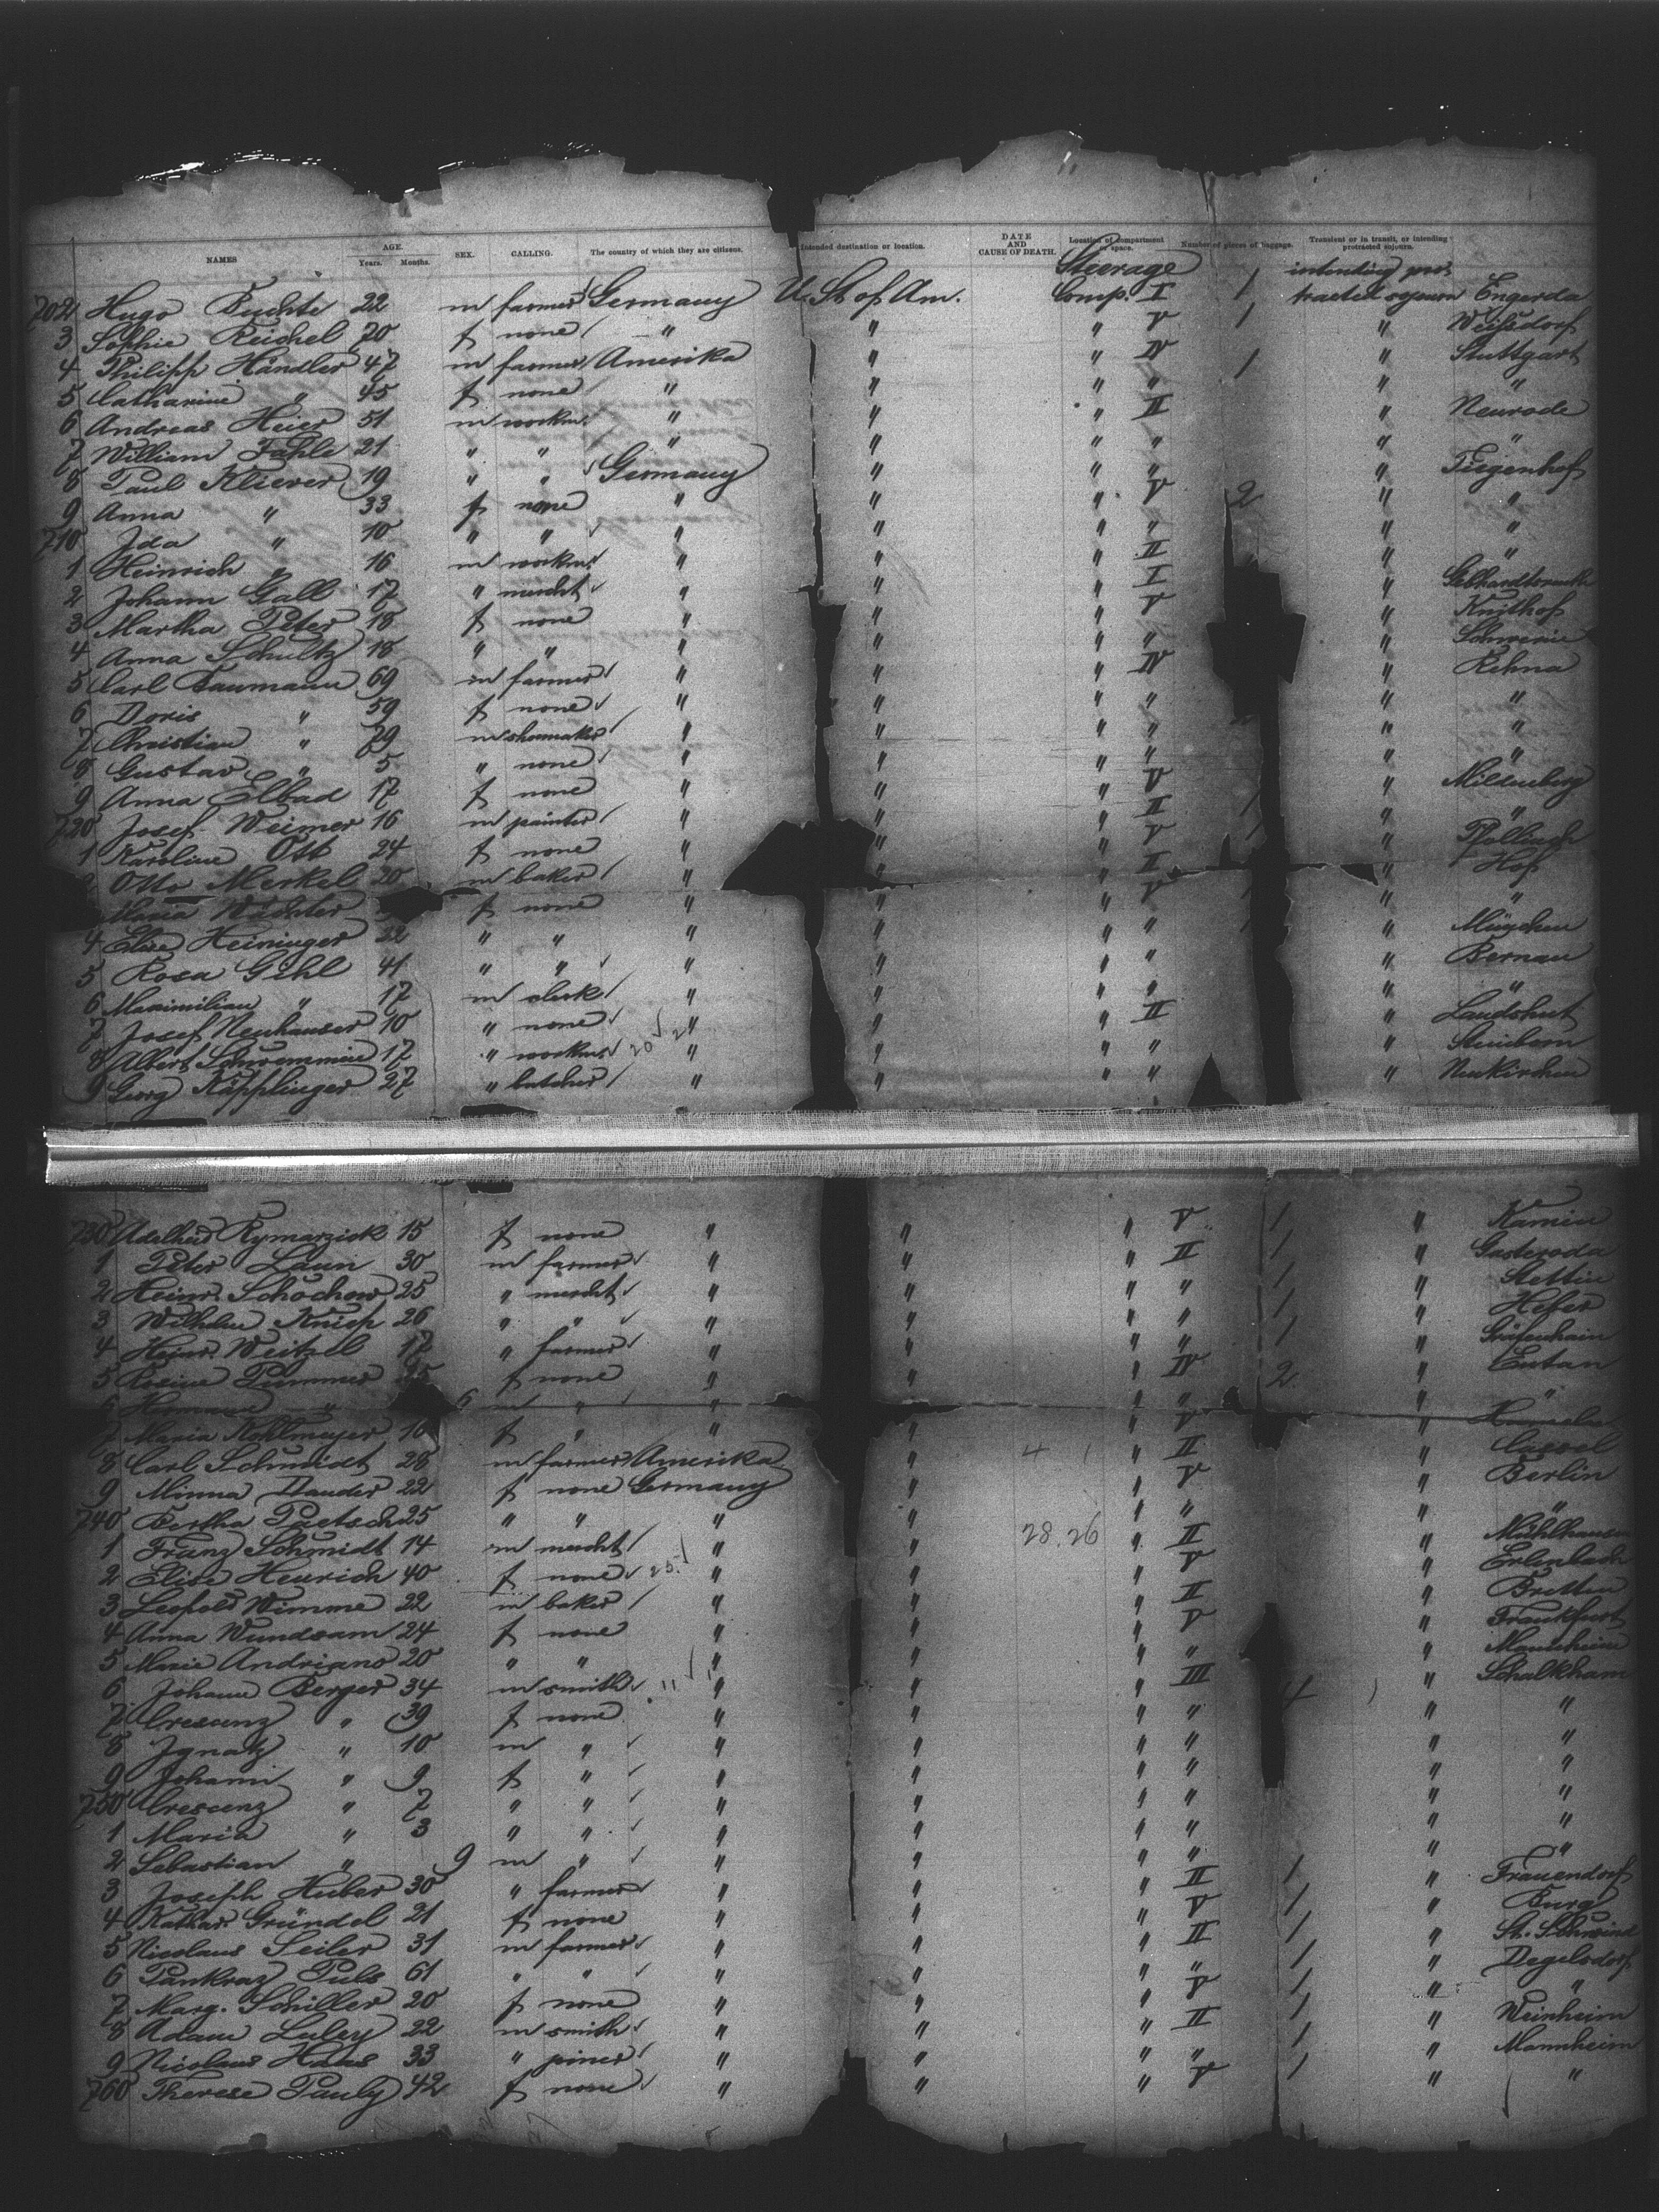 NAMES AGE. Years. Months. SEX. CALLING. The country of which they are citizens. Intended destination or location. DATE AND CAUSE OF DEATH. Location of compartment or space. Number of pieces of baggage. Transient or in transit, or intending protracted sojourn.
Steerage intending pro-
702 Hugo Buchte 22 m farmer Germany U. St. of Am. Comp. I 1 tracted sojourn Engerda
3 Sophie Reichel 70 f none " " " V 1 "
4 Philipp Händler 47 m farmer Amerika " " IV 1 " Stuttgart
5 Catharine " 45 f none " " " " " "
6 Andreas Heier 51 m workm. " " " II " Neurode
7 William Fahle 21 " " " " " " " "
8 Paul Kliever 19 " " Germany " " " " Tiegenhof
9 Anna " 33 f none " " " V 2 " "
710 Ida " 10 " " " " " " " "
1 Heinrich " 16 m workm. " " " II " "
2 Johann Gall 17 " mercht " " " I "
3 Martha Peter 18 f none " " " V "
4 Anna Schultz 18 " " " " " " " Schwerin
5 Carl Baumann 69 m farmer " " " IV " Rehna
6 Doris " 59 f none " " " " " "
7 Christian " 29 m shoemaker " " " " " "
8 Gustav " 5 " none " " " " " "
9 Anna Elbad 17 f none " " " V " Mildenberg
720 Josef Weimer 16 m painter " " " II 1 " "
1 Karoline Ott 24 f none " " " V 1 "
Otto Merkel 20 m baker " " II " Hof
Maria Wächter f none " " " V " "
4 Elise Heininger 22 " " " " " " " München
5 Rosa Gihl 41 " " " " " " " Bernau
6 Maximilian " 17 m clerk " " " " " "
7 Josef Neuhauser 10 " none " " " II " Landshut
8 Albert 17 " workm. " " " " " Steinborn
9 Georg Käpplinger 27 " butcher " " " " " Neukirchen
730 Adelheid Rymarzick 15 f none " " " V 1 " Kamin
1 Peter Laun 30 m farmer " " " II 1 " Gasteroda
2 Heinr. Schochow 25 " mercht " " " " 1 " Stettin
3 Wilhelm Kniep 26 " " " " " " 1 "
4 Heinr. Weitzel 17 " farmer " " " " 1 " Gräfenhain
5 Rosine Pummer f none " " " IV 2 "
6 " 6 m " " " " " "
7 Maria Kohlmeyer 16 f " " " " V "
8 Carl Schmidt 28 m farmer Amerika " 4 1 " II " Cassel
9 Minna Dauder 22 f none Germany " " V " Berlin
740 Bertha Paetsch 25 " " " " " " " "
1 Franz Schmidt 14 m mercht " " 28.26 " II " Mühlhausen
2 Elise Henrich 40 f none " " " V " Erlenbach
3 Leopold Wimme 22 m baker " " " II " Bretten
4 Anna Wundsam 24 f none " " " V " Frankfurt
5 Marie Andriano 20 " " " " " " " Mannheim
6 Johann Berger 34 m smith 11 " " " III 4 " Schalkham
7 Crescenz " 39 f none " " " " " "
8 Ignatz " 10 m " " " " " " "
9 Johanni " 9 f " " " " " " "
750 Crescenz " 7 " " " " " " " "
1 Maria " 3 " " " " " " " "
2 Sebastian " 9 m " " " " " " "
3 Joseph Huber 30 " farmer " " " II 1 " Frauendorf
4 Kathar. Gründel 21 f none " " " V 1 " Burg
5 Nicolaus Seiler 31 m farmer " " " II 1 "
6 Pankraz Puls 61 " " " " " " 1 " Degelsdorf
7 Marg. Schiller 20 f none " " " V 1 " "
8 Adam Luley 22 m smith " " " II 1 " Weinheim
9 Nicolaus Haas 33 " joiner " " " " 1 " Mannheim
760 Therese Pauly 42 f none " " " V 1 " "